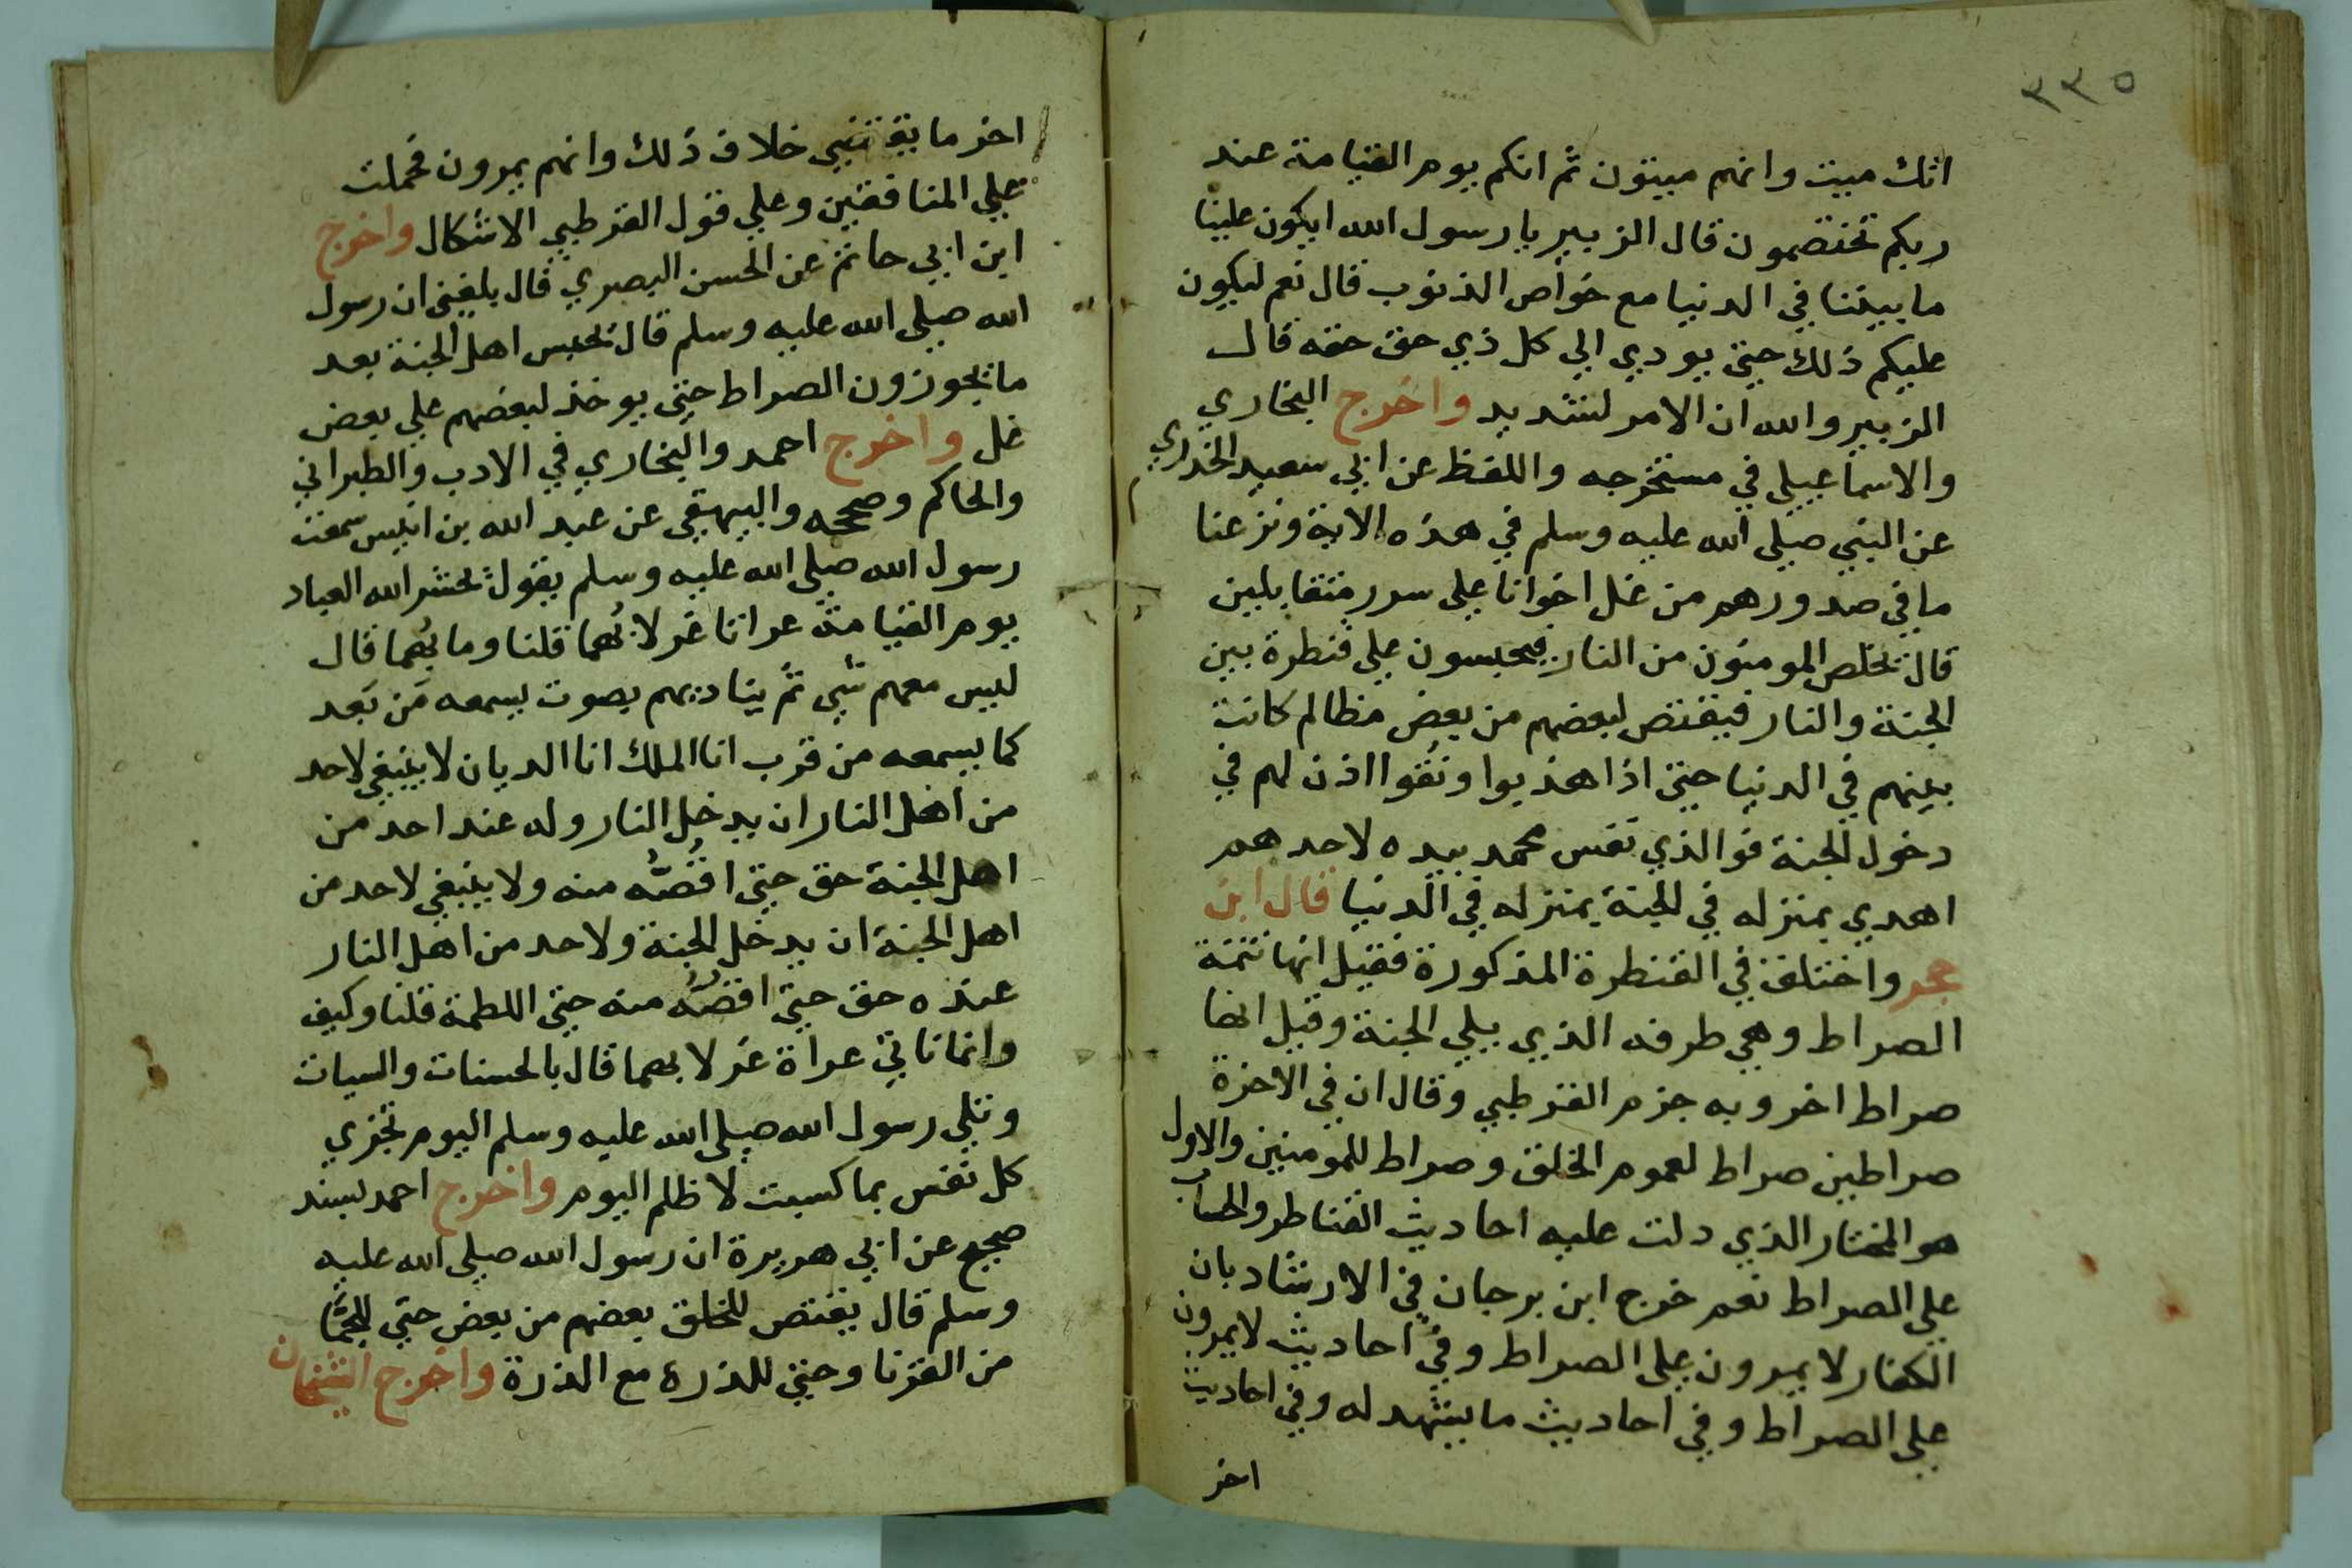 ٣٣٥
انك ميت وانهم ميتون ثم انكم يوم القيامة عند
ربكم تختصمون قال الزبير يا رسول الله ايكون علينا
ما بيننا في الدنيا مع خواص الذنوب قال نعم ليكون
عليكم ذلك حتي يودي الي كل ذي حق حقه قال
الزبير والله ان الامر لشديد واخرج البخاري
والاسماعيلي في مستخرجه واللفظ عن ابي سعيد الخدري
عن النبي صلي الله عليه وسلم في هذه الاية ونزعنا
ما في صدورهم من غل اخوانا علي سرر متقابلين
قال يخلص المومنون من النار فيحبسون علي قنطرة بين
الجنة والنار فيقتص لبعضهم من بعض مظالم كانت
بينهم في الدنيا حتي اذا هذبوا ونُقوا اذن لهم في
دخول الجنة فوالذي نفس محمد بيده لاحدهم
اهدي بمنزله في الجنة بمنزله في الدنيا قال ابن
حجر واختلف في القنطرة المذكورة فقيل انها تتمة
الصراط وهي طرفه الذي يلي الجنة وقيل انها
صراط اخر وبه جزم القرطبي وقال ان في الاخرة
صراطين صراط لعموم الخلق وصراط للمومنين والاول
هو المختار الذي دلت عليه احاديث القناطر والحساب
علي الصراط نعم خرج ابن برجان في الارشاد بان
الكفار لا يمرون علي الصراط وفي احاديث لا يمرون
علي الصراط وفي احاديث ما يشهد له وفي احاديث
اخر
اخر ما يقتضي خلاف ذلك وانهم يمرون فحملت
علي المنافقين وعلي قول القرطبي الاشكال واخرج
ابن ابي حاتم عن الحسن البصري قال بلغني ان رسول
الله صلي الله عليه وسلم قال يحبس اهل الجنة بعد
ما يجوزون الصراط حتي يوخذ لبعضهم علي بعض
غل واخرج احمد والبخاري في الادب والطبراني
والحاكم وصححه والبيهقي عن عبد الله بن انيس سمعت
رسول الله صلي الله عليه وسلم يقول يحشر الله العباد
يوم القيامة عراتا غرلا بُهما قلنا وما بُهما قال
ليس معهم شي ثم يناديهم بصوت يسمعه مَن بَعد
كما يسمعه من قرب انا الملك انا الديان لا ينبغي لاحد
من اهل النار ان يدخل النار وله عند احد من
اهل الجنة حق حتي اقُصُّه منه ولا ينبغي لاحد من
اهل الجنة ان يدخل الجنة ولاحد من اهل النار
عنده حق حتي اقصُّه منه حتي اللطمة قلنا وكيف
وانما ناتي عراة غرلا بهما قال بالحسنات والسيات
وتلي رسول الله صلي الله عليه وسلم اليوم تجزي
كل نفس بما كسبت لا ظلم اليوم واخرج احمد بسند
صحيح عن ابي هريرة ان رسول الله صلي الله عليه
وسلم قال يقتص للخلق بعضهم من بعض حتي للجمّا
من القرنا وحتي للذرة مع الذرة واخرج الشيخان